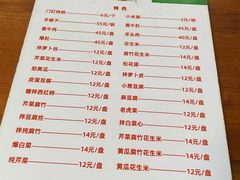 特 色
门钉肉饼 6元/个
羊蝎子 55元/锅
酱牛肉 45元/盘
爆肚
拌萝卜 12元/盘
拍黄瓜 12元/盘
皮蛋豆腐 12元/盘
糖拌西红柿 12元/盘
芹菜腐竹 12元/盘
芹菜花生米 12元/盘
拌纯腐竹 14元/盘
爆白菜 14元/盘
纯芹菜 12元/盘
小米粥 2元/碗
酱牛肚
羊头肉 40元/盘
花生米 12元/盘
松花蛋 12元/盘
拌萝卜皮 12元/盘
小葱豆腐 12元/盘
麻豆腐 14元/盘
老虎菜 12元/盘
拌白菜心 12元/盘
腐竹花生米 14元/盘
黄瓜腐竹 14元/盘
黄瓜花生米 12元/盘